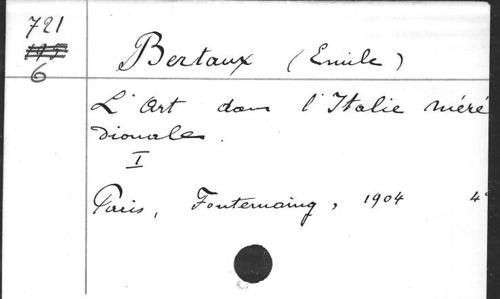 721
195
6
Bertaux (Emile)
L'Art dans l'Italie méri
dionale.
I
Paris, Fontemoing, 1904 4°